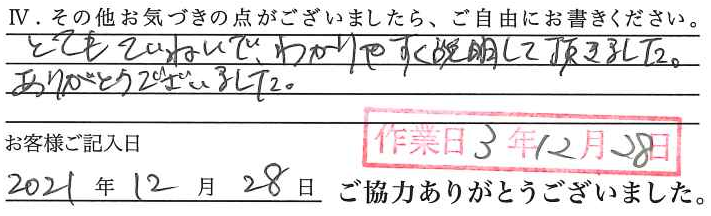 Ⅳ.その他お気づきの点がございましたら、ご自由にお書きください。
とてもていねいで、わかりやすく説明して頂きました。
ありがとうございました。
お客様ご記入日
作業日 3年12月28日
2021年12月28日 ご協力ありがとうございました。